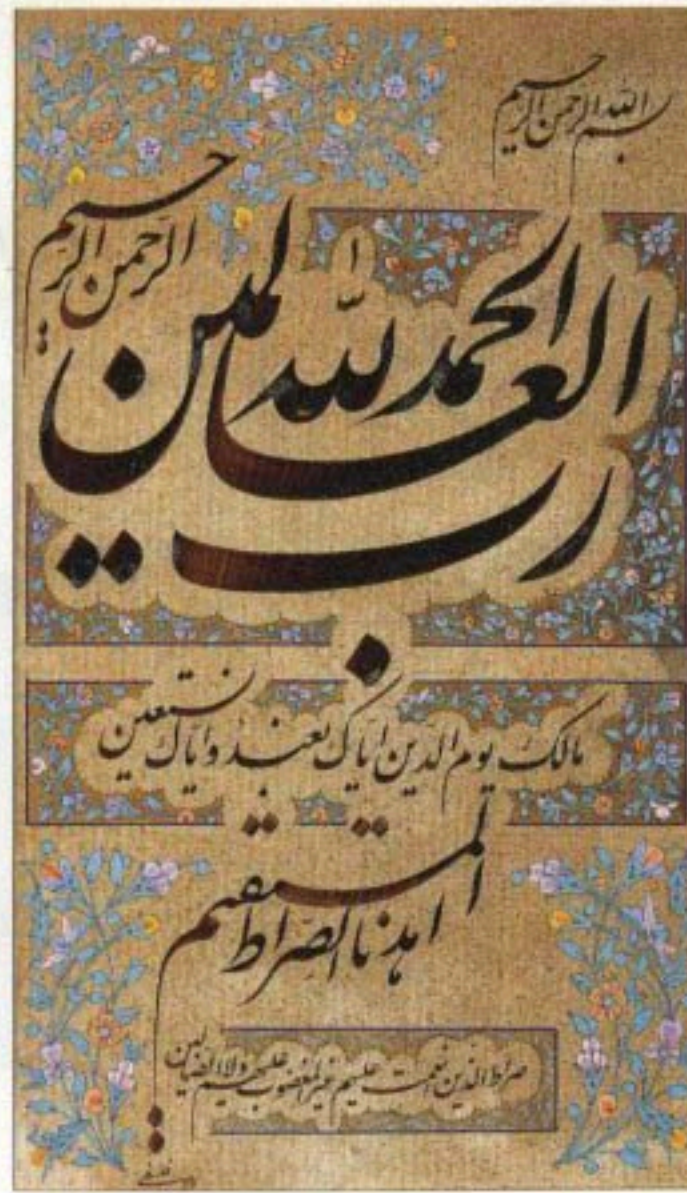 بسم الله الرحمن الرحيم
الحمد لله
رب العالمين
الرحمن الرحيم
مالك يوم الدين اياك نعبد واياك نستعين
اهدنا الصراط المستقيم
صراط الذين انعمت عليهم غير المغضوب عليهم ولا الضالين